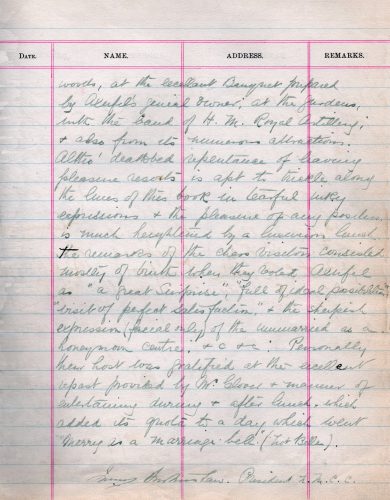 DATE. NAME. ADDRESS. REMARKS.
words, at the excellant Banquet prepared
by Rosherville's genial owner, at the gardens,
with the band of H. M. Royal Artillery;
& also from its numerous attractions.
Altho' deathbed repentance of leaving
pleasure resorts is apt to trickle along
the lines of this book in tearful inky
expressions & the pleasure of any position
is much heightened by a luncheon lunch
the remarks of the chess visitors consisted
mostly of birth when they voted
as "a great Surprise", "full of ideal possibilities"
"visit of perfect satisfaction," & the sheepest
expression (facial only) of the unmarried as a
honeymoon centre, &c &c: Personally
their host was gratified at the excellent
repast provided by Mr Glover & manner of
entertaining during & after lunch. which
added its quota to a day which went
"Merry as a marriage bell." (not Belle).
President